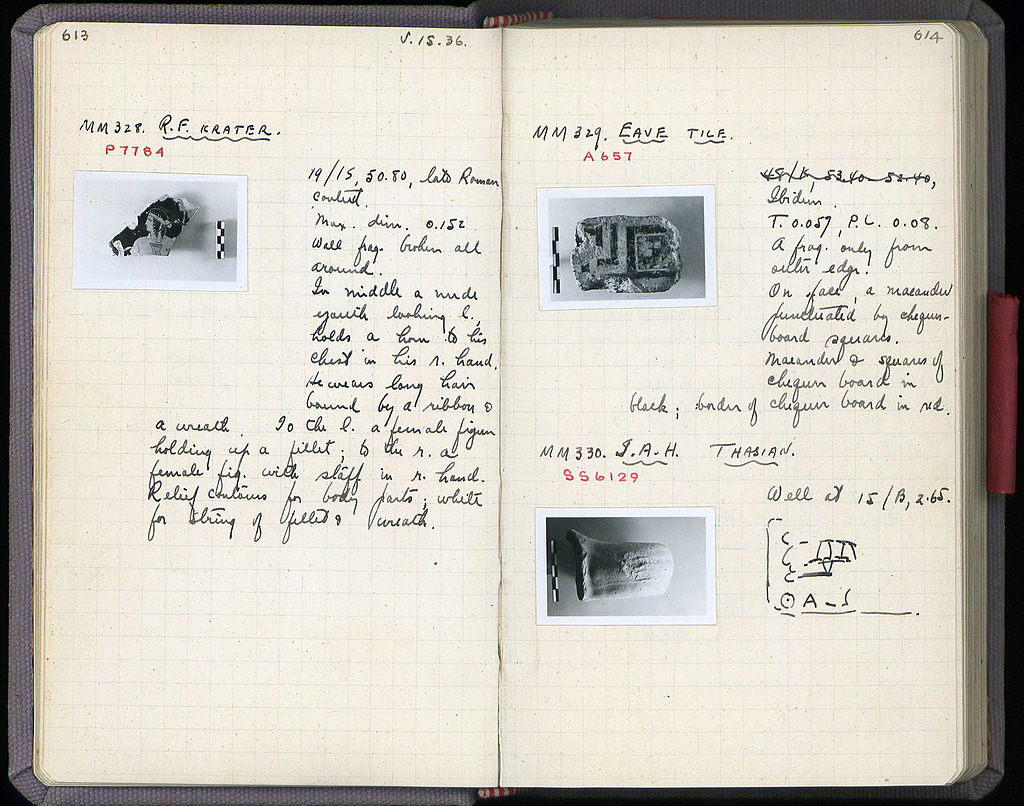 613
V.15.36.
MM 328. R.F. KRATER.
P 7784
19/15, 50.80, late Roman
context.
Max. dim. 0.152
Wall frag. broken all
around.
In middle a nude
youth looking l.,
holds a horn to his
chest in his r. hand.
He wears long hair
bound by a ribbon &
a wreath. To the l. a female figure
holding up a fillet; to the r. a
female fig. with staff in r. hand.
Relief contours for body parts; white
for string of fillet & wreath.
614
MM 329. EAVE TILE.
A 657
Ibidem.
T. 0.057, P.L. 0.08.
A frag. only from
outer edge.
On face, a maeander
punctuated by chequer-
board squares.
Maeander & squares of
chequer board in
black; border of chequer board in red.
MM 330. S.A.H. THASIAN.
SS 6129
Well at 15/B, 2.65.